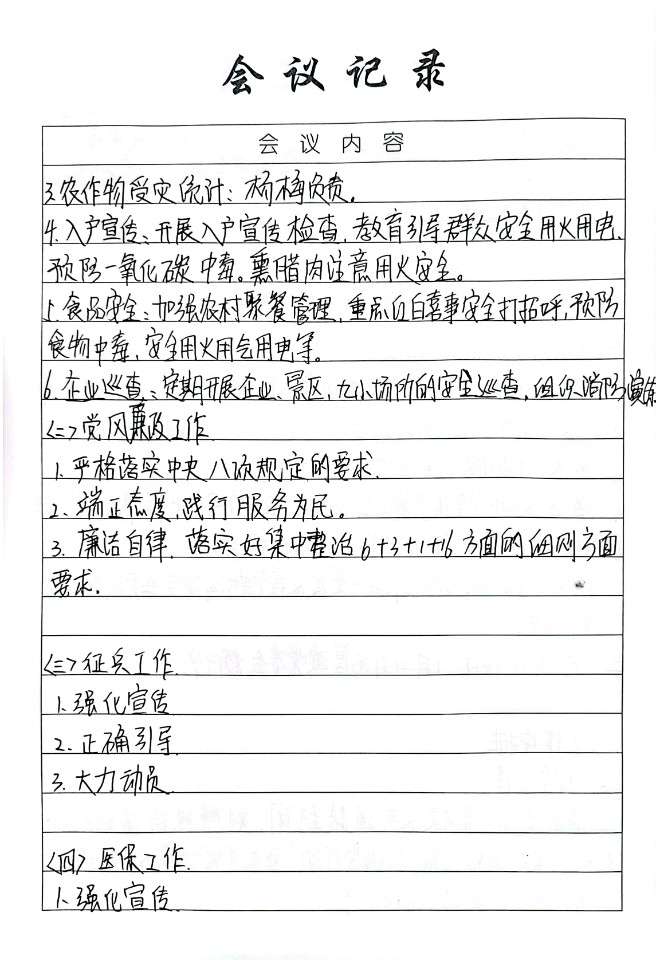 会议记录
会议内容
3.农作物受灾统计：杨梅负责。
4.入户宣传：开展入户宣传检查，教育引导群众安全用火用电、
预防一氧化碳中毒。熏腊肉注意用火安全。
5.食品安全：加强农村聚餐管理，重点红白喜事安全打招呼，预防
食物中毒，安全用火用气用电等。
6.企业巡查：定期开展企业、景区，九小场所的安全巡查，组织消防演练
<二>党风廉政工作.
1.严格落实中央八项规定的要求.
2.端正态度，践行服务为民。
3.廉洁自律，落实好集中整治6+3+1+16方面的细则方面
要求.
<三>征兵工作.
1.强化宣传
2.正确引导
3.大力动员.
<四>医保工作.
1.强化宣传.